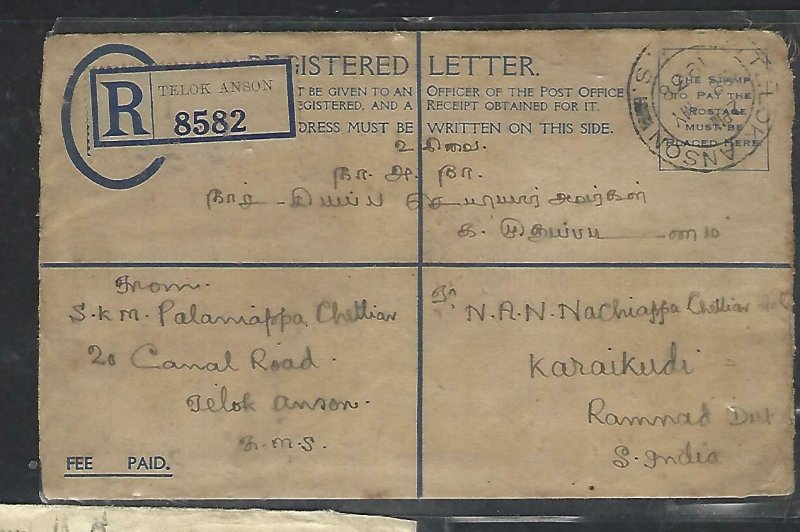 REGISTERED LETTER.
R TELOK ANSON
8582
BE GIVEN TO AN OFFICER OF THE POST OFFICE
REGISTERED, AND A RECEIPT OBTAINED FOR IT.
ADDRESS MUST BE WRITTEN ON THIS SIDE.
THE STAMP
TO PAY THE
POSTAGE
MUST BE
PLACED HERE
TELOK ANSON
உ சிவை.
நா. அ. நா.
அவர்கள்
From
S.K.M. Palaniappa Chettiar
20 Canal Road.
Telok Anson.
F.M.S.
To
N.A.N. Nachiappa Chettiar
Karaikudi
Ramnad Dist
S. India
FEE PAID.